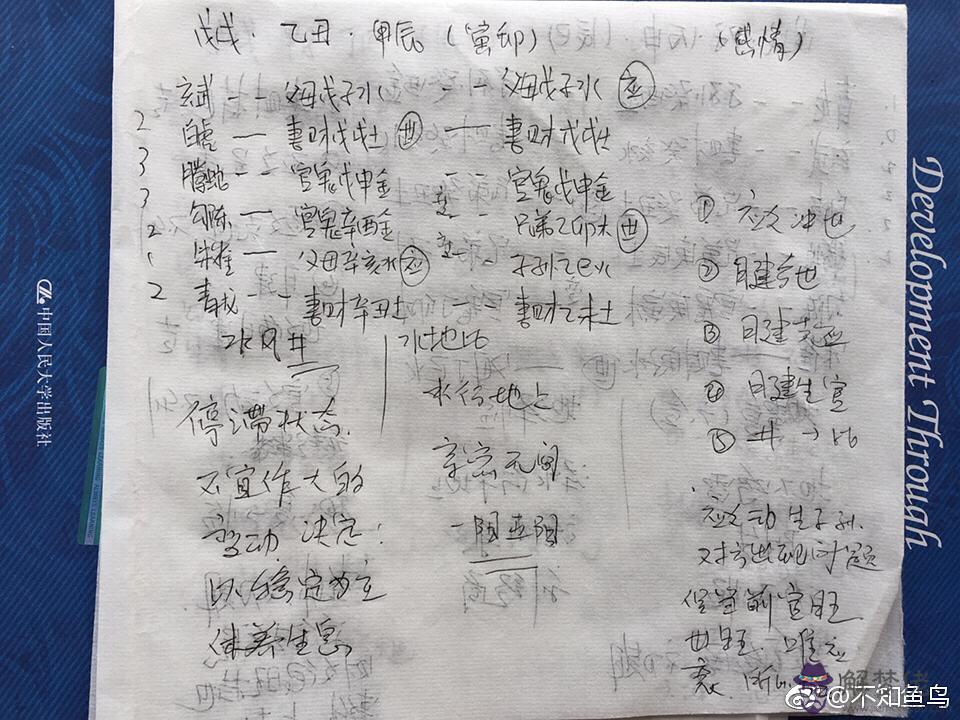 戊戌·乙丑·甲辰（寅卯）（感情）
玄武 -- 父母戊子水 -- 父母戊子水 应
2 白虎 — 妻财戊戌土 世 — 妻财戊戌土
3 腾蛇 -- 官鬼戊申金 -- 官鬼戊申金
3 勾陈 — 官鬼辛酉金 -- 兄弟乙卯木 世
2
1 朱雀 — 父母辛亥水 应 -- 子孙乙巳火
2 青龙 -- 妻财辛丑土 -- 妻财乙未土
水风井
水地比
停滞状态.
不宜作大的
变动 决定:
以稳定为主
休养生息
水行地上
亲密无间
① 应爻冲世
② 日建合世
③ 日建克应
④ 日建生官
⑤ 井→比
应爻动生子孙.
对方出现问题
但当前官旺
世旺. 唯应
衰.
中国人民大学出版社
Development Through
解梦佬
@不知鱼鸟